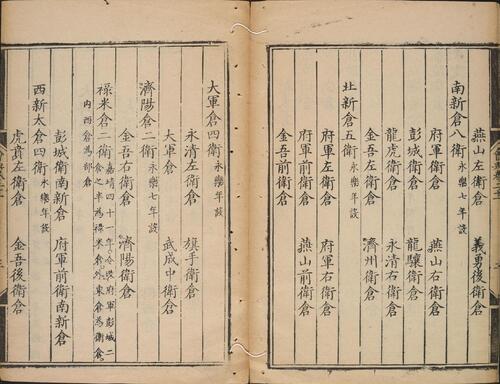 燕山左衛倉 義勇後衛倉
南新倉八衛 永樂七年設
府軍衛倉 燕山右衛倉
彭城衛倉 龍驤衛倉
龍虎衛倉 永清右衛倉
金吾左衛倉 濟州衛倉
北新倉五衛 永樂年設
府軍左衛倉 府軍右衛倉
府軍前衛倉 燕山前衛倉
金吾前衛倉
大軍倉四衛 永樂年設
永清左衛倉 旗手衛倉
大軍倉 武成中衛倉
濟陽倉二衛 永樂七年設
金吾右衛倉 濟陽衛倉
祿米倉二衛 嘉靖四十一年令撥府軍彭城二
倉之半為祿米倉外東倉為衛倉
內西倉為部倉
彭城衛南新倉 府軍前衛南新倉
西新太倉四衛 永樂年設
虎賁左衛倉 金吾後衛倉